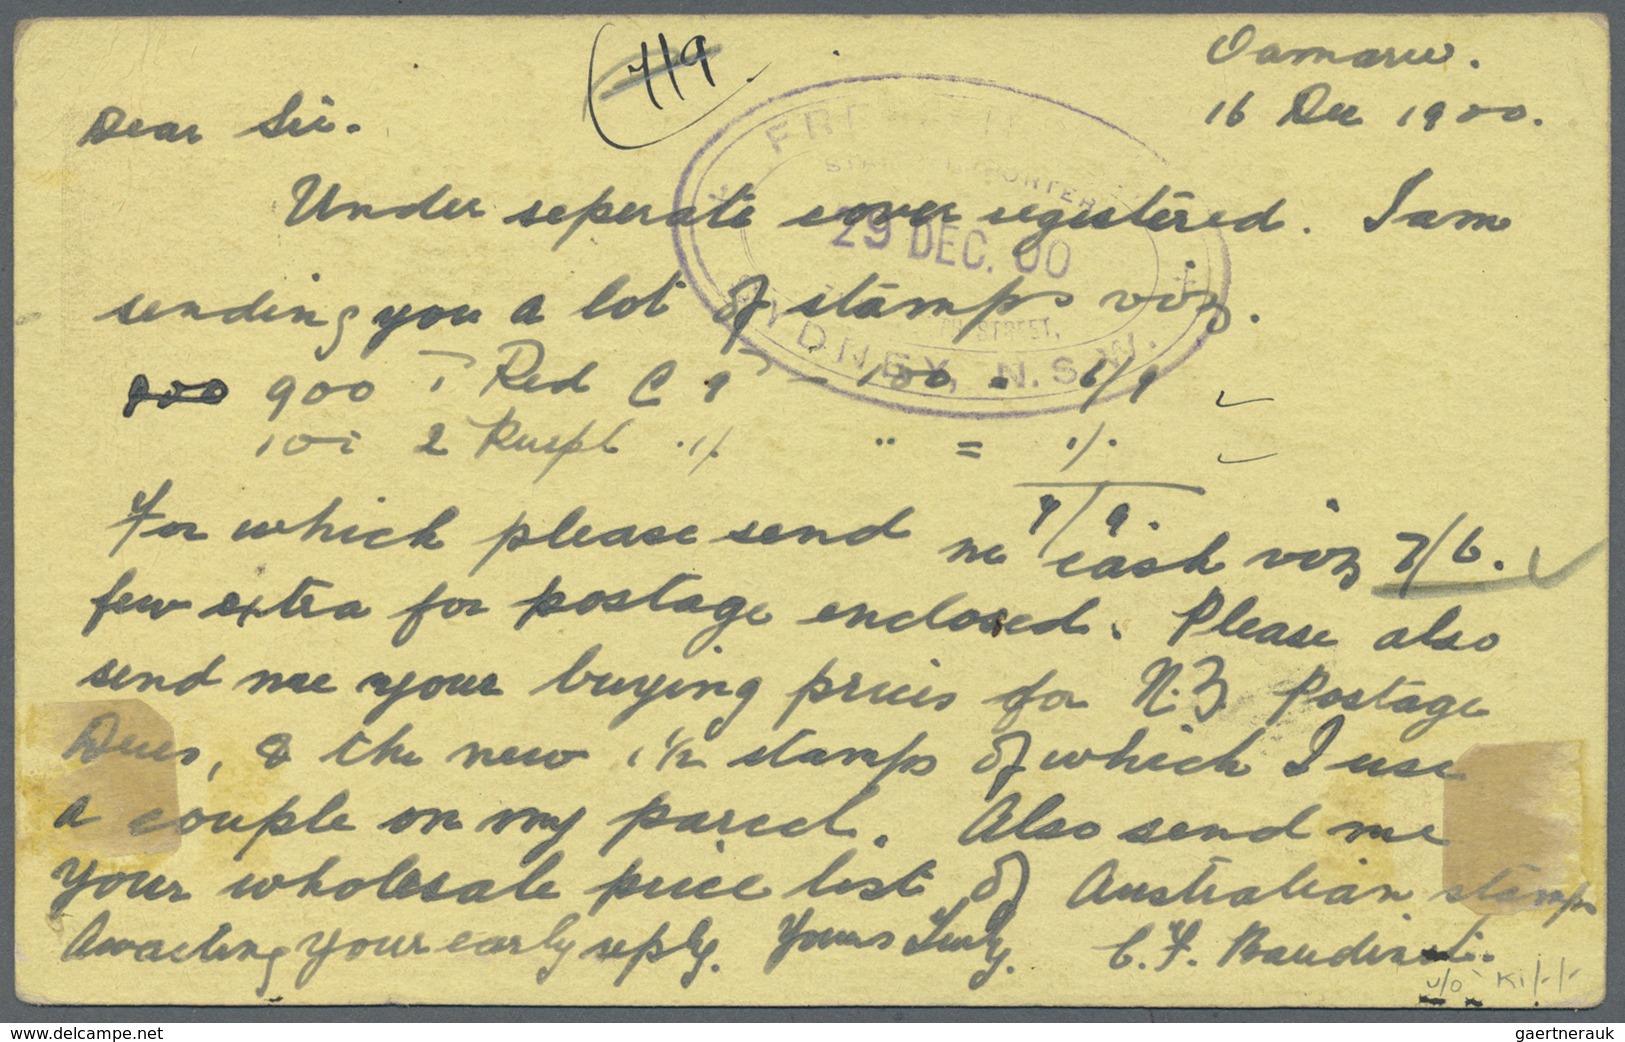 (119)
Oamaru.
16 Dec 1900.
Dear Sir.
Under seperate cover registered. I am
sending you a lot of stamps viz.
800 900 1 Red C 9 — 100 = 6/9
101 2 Purpl 1/ " = 1/.
7/9.
For which please send me cash viz 7/6.
few extra for postage enclosed. Please also
send me your buying prices for N.Z Postage
Dues, & the new 1½ stamps of which I use
a couple on my parcel. Also send me
your wholesale price list of Australian stamps
Awaiting your early reply. Yours Truly. C. F.
29 DEC. 00
STREET.
SYDNEY, N.S.W.
delcampe.net
gaertnerauk